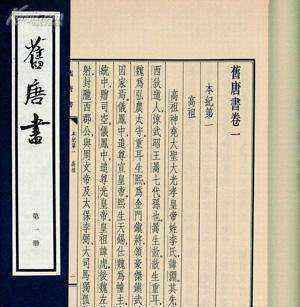 舊唐書卷一
本紀第一
高祖
高祖神堯大聖大光孝皇帝姓李氏諱淵其
西狄道人涼武昭王暠七代孫也暠生歆歆生重
魏為弘農太守重耳生熙為金門鎮將領豪傑鎮
因家焉儀鳳中追尊宣皇帝熙生天錫仕魏為幢主
統中贈司空儀鳳中追尊光皇帝皇祖諱虎後
射封隴西郡公與周文帝及太保李弼大司馬獨
舊唐書
第一册